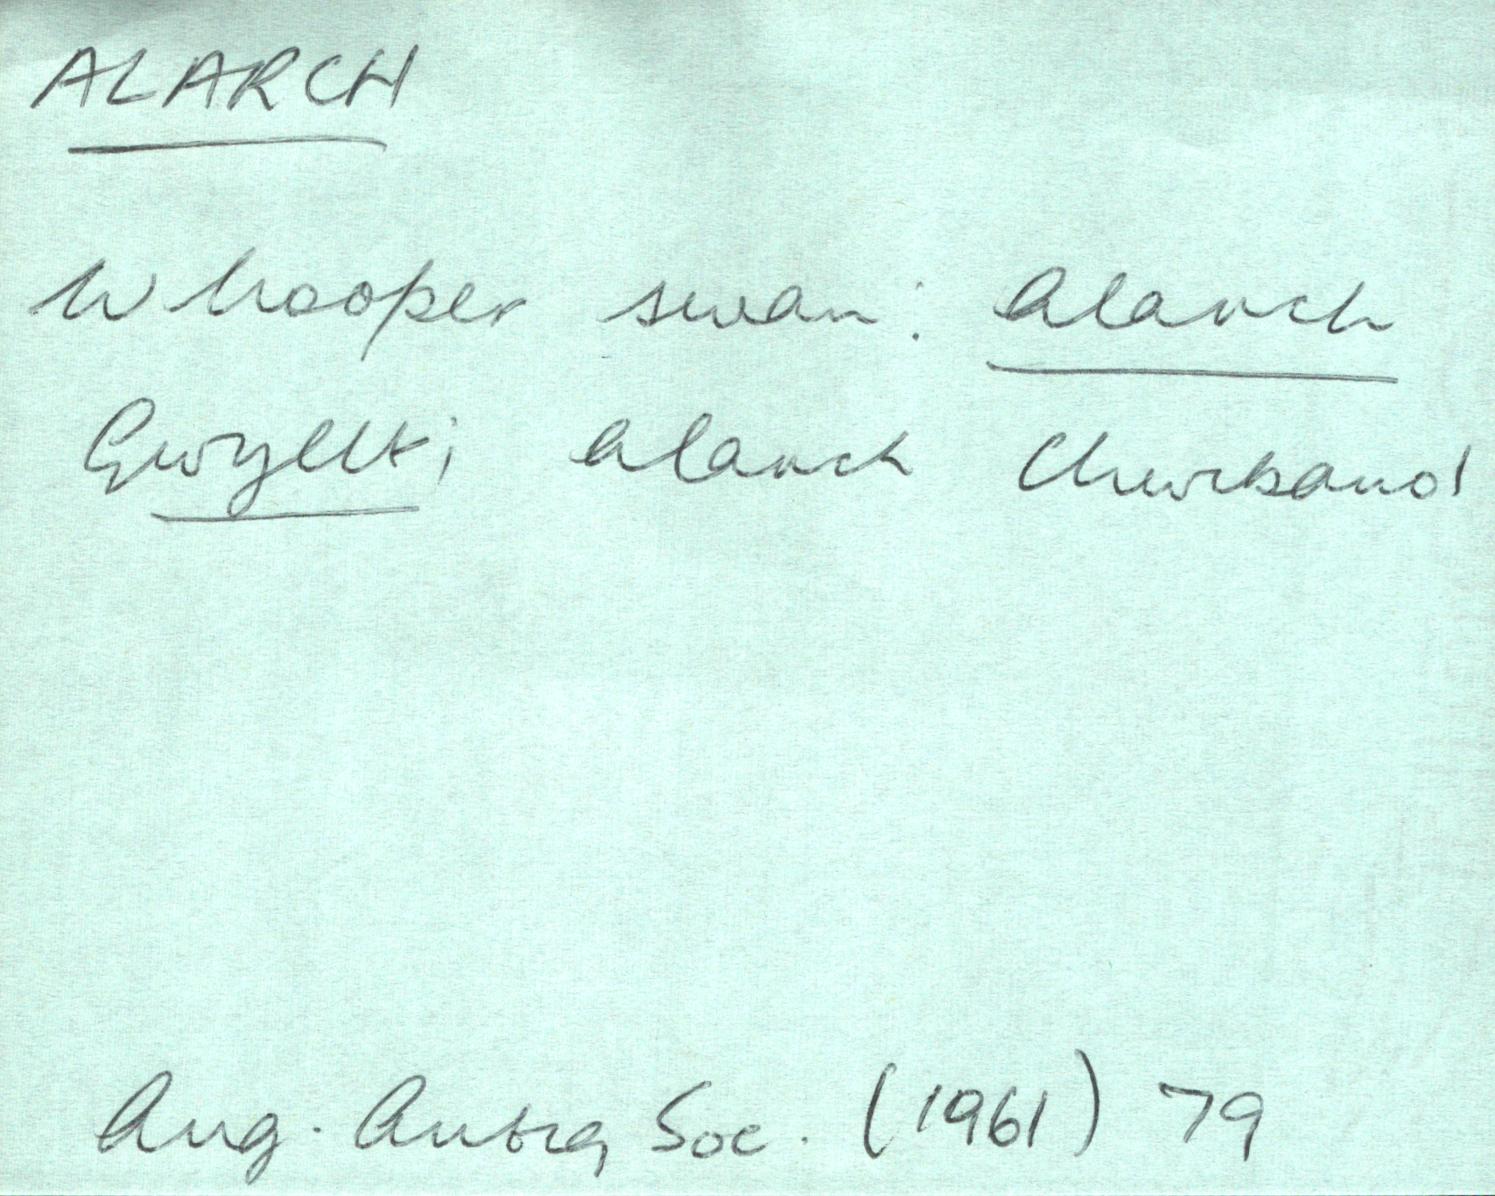 ALARCH
Whooper swan: alarch
Gwyllt; alarch Chwiband
Ang. Antiq Soc. (1961) 79